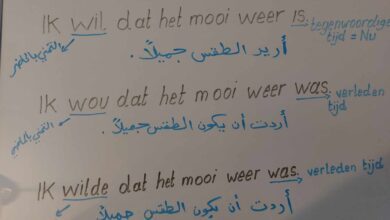 Ik wil dat het mooi weer is. → tegenwoordige
tijd = Nu
أريد الطقس جميلاً.
Ik wou dat het mooi weer was. → verleden
tijd
أردت أن يكون الطقس جميلاً.
Ik wilde dat het mooi weer was. → verleden tijd
أردت أن يكون الطقس جميلاً